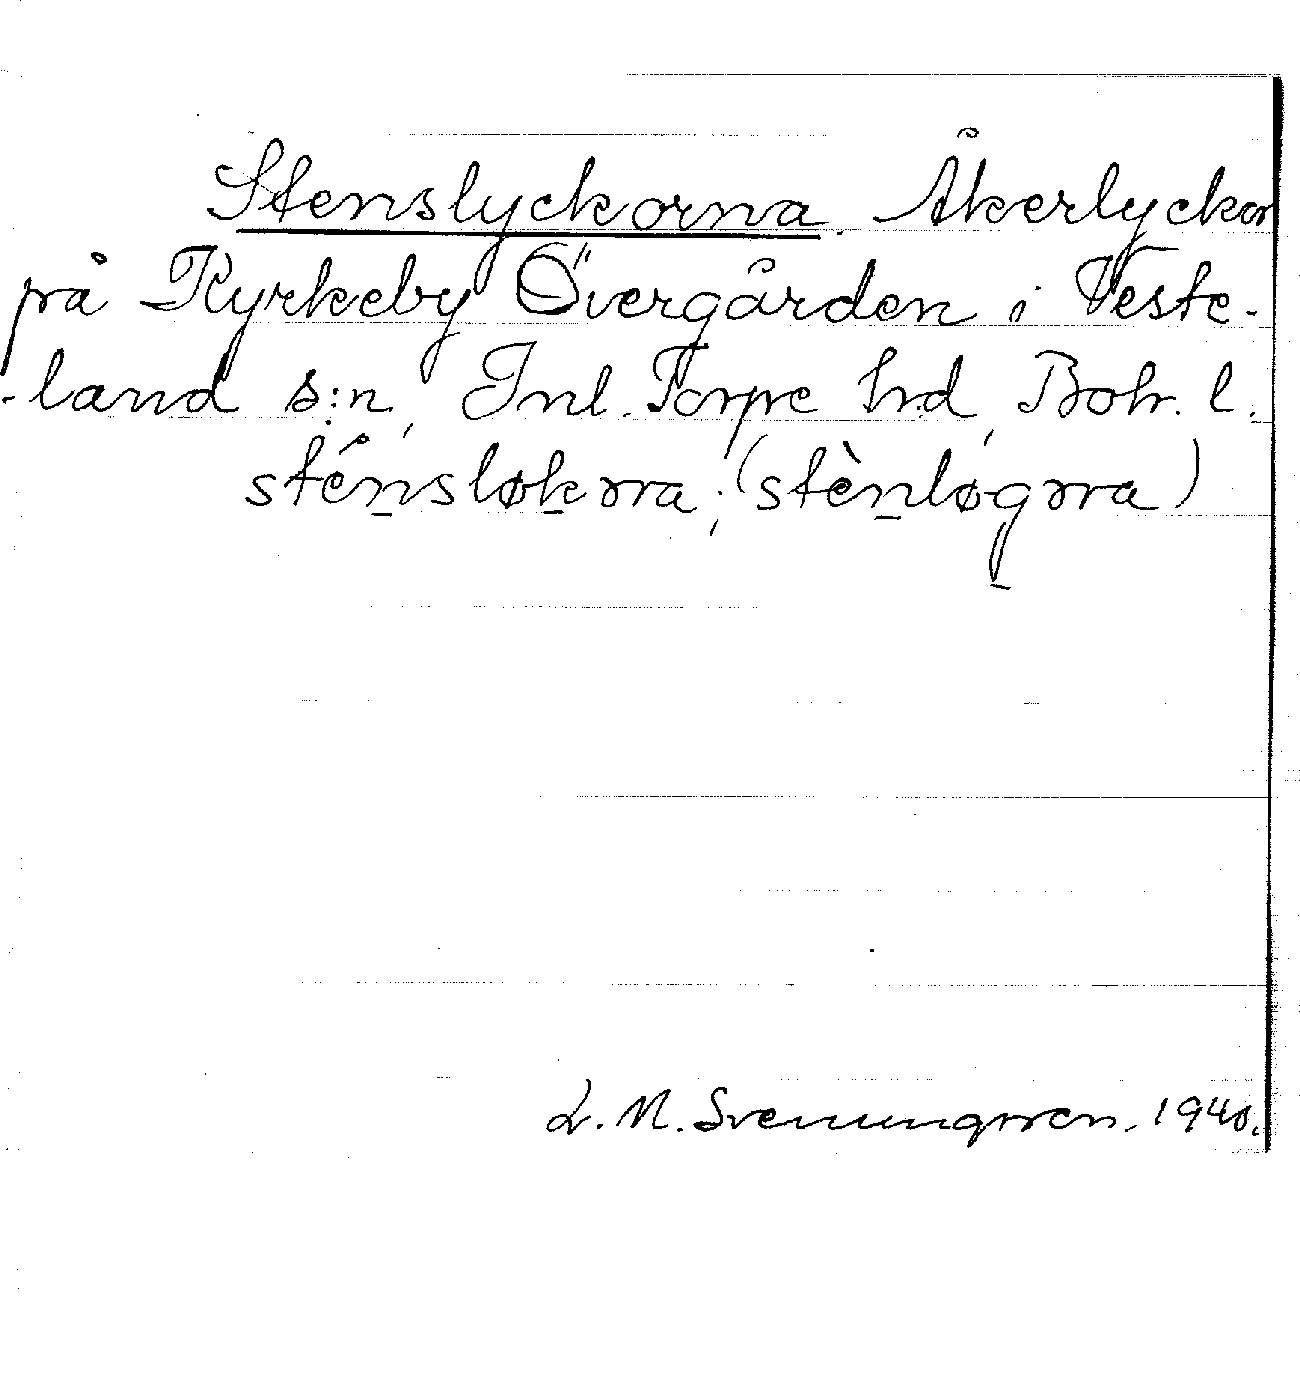 Stenslyckorna. Åkerlyckor
på Kyrkeby Övergården i Veste-
-land s:n, Inl. Torpe hd, Boh. l.
sténsløkɔra; (stènløgɔra)
L. M. Svenungsson. 1940.